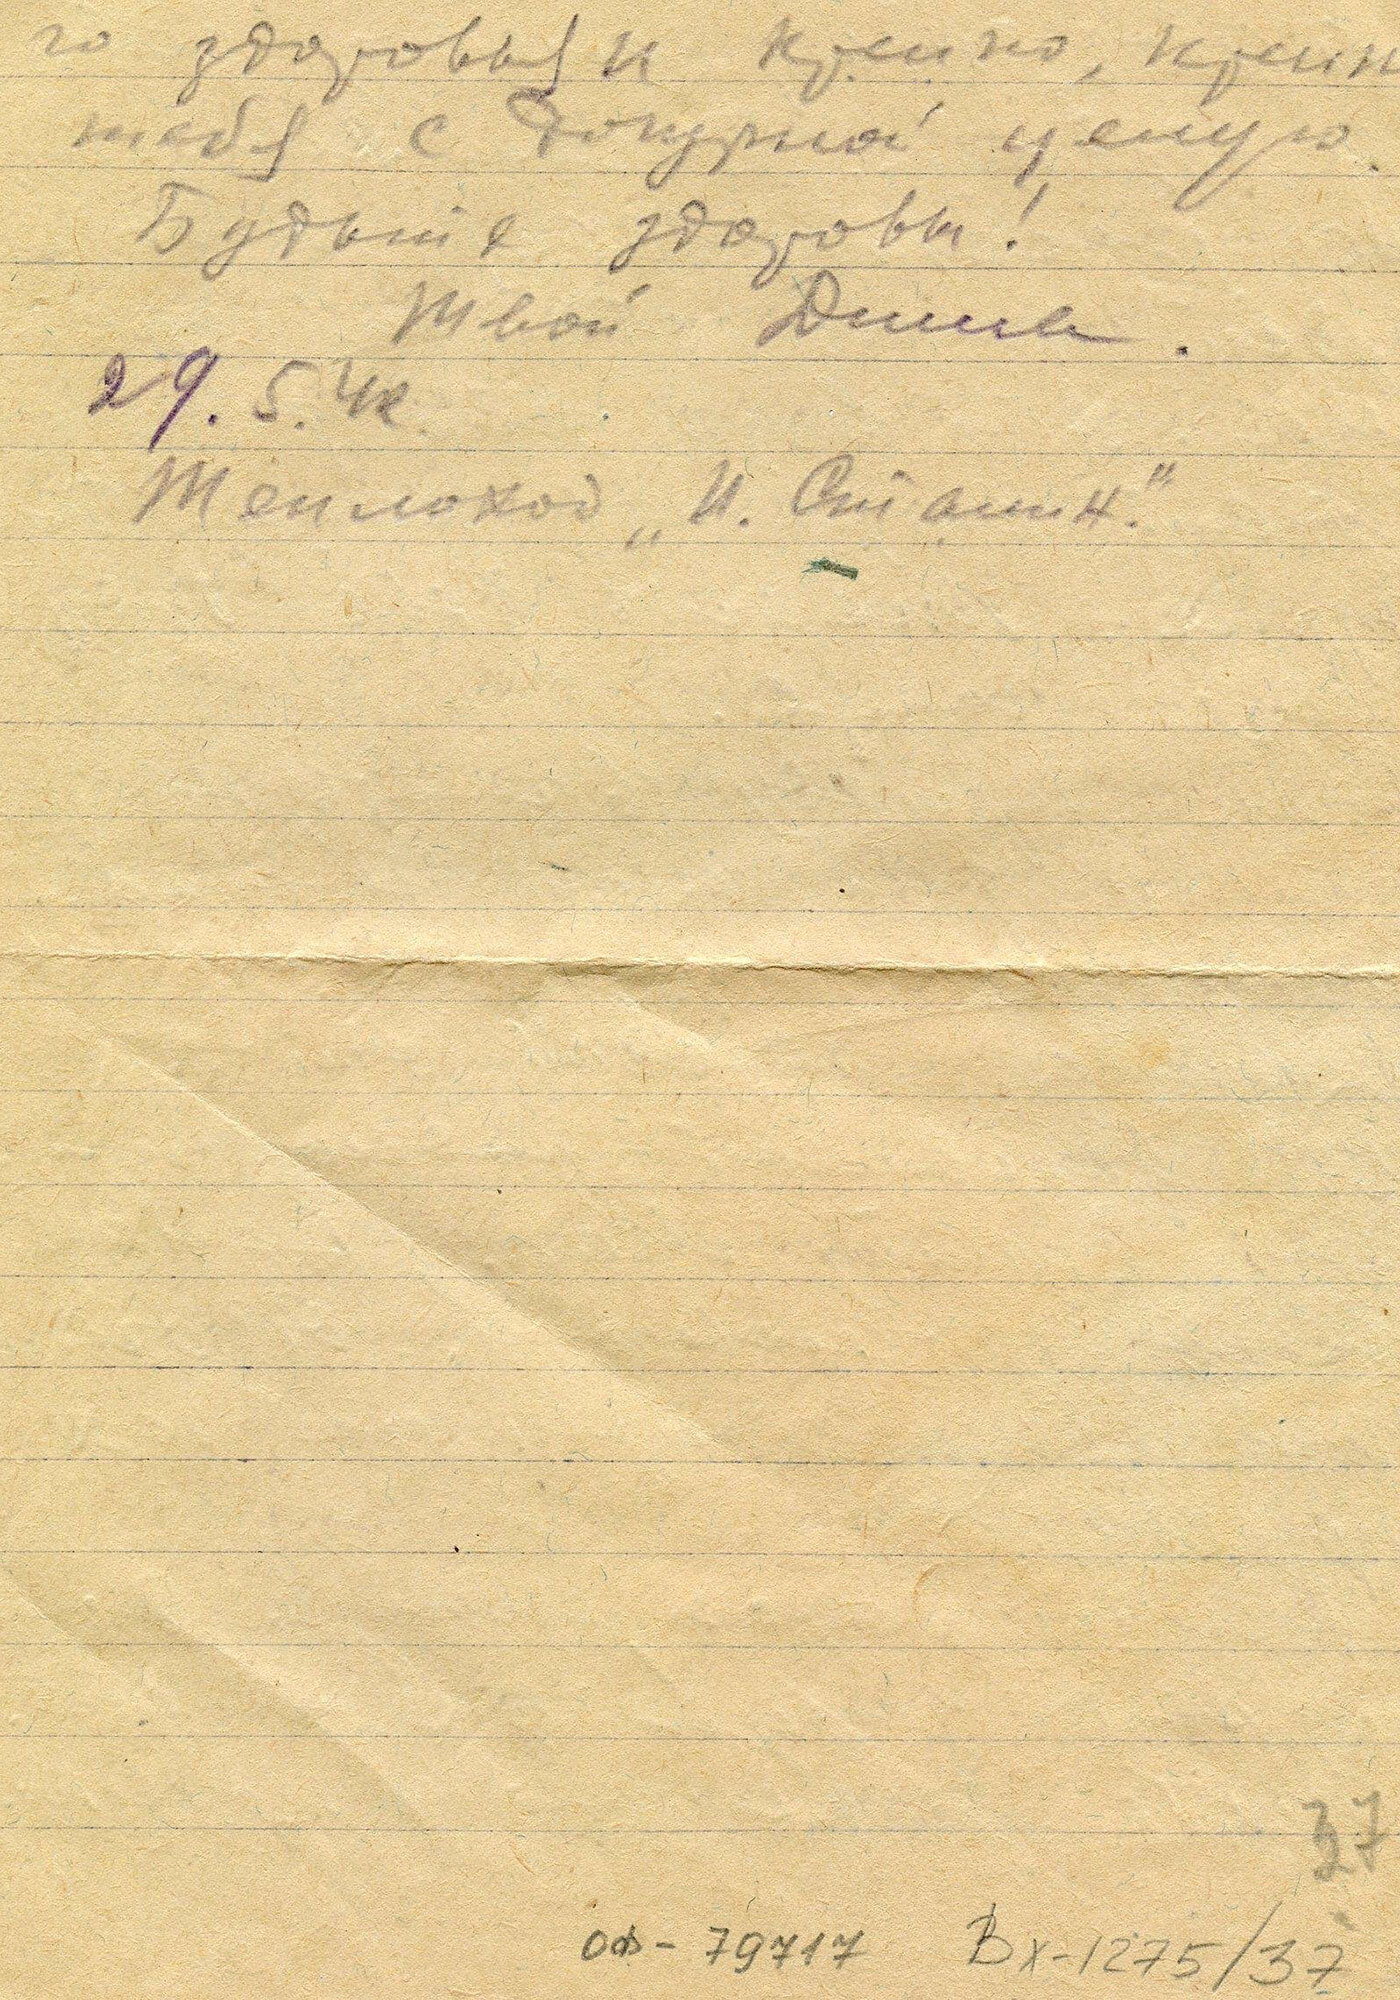 го здоровья и крепко, крепк
тебя с дочуркой целую.
Будьте здоровы!
Твой
29.5.42.
Теплоход „И. Сталин."
37
ОФ-79717 Вх-1275/37